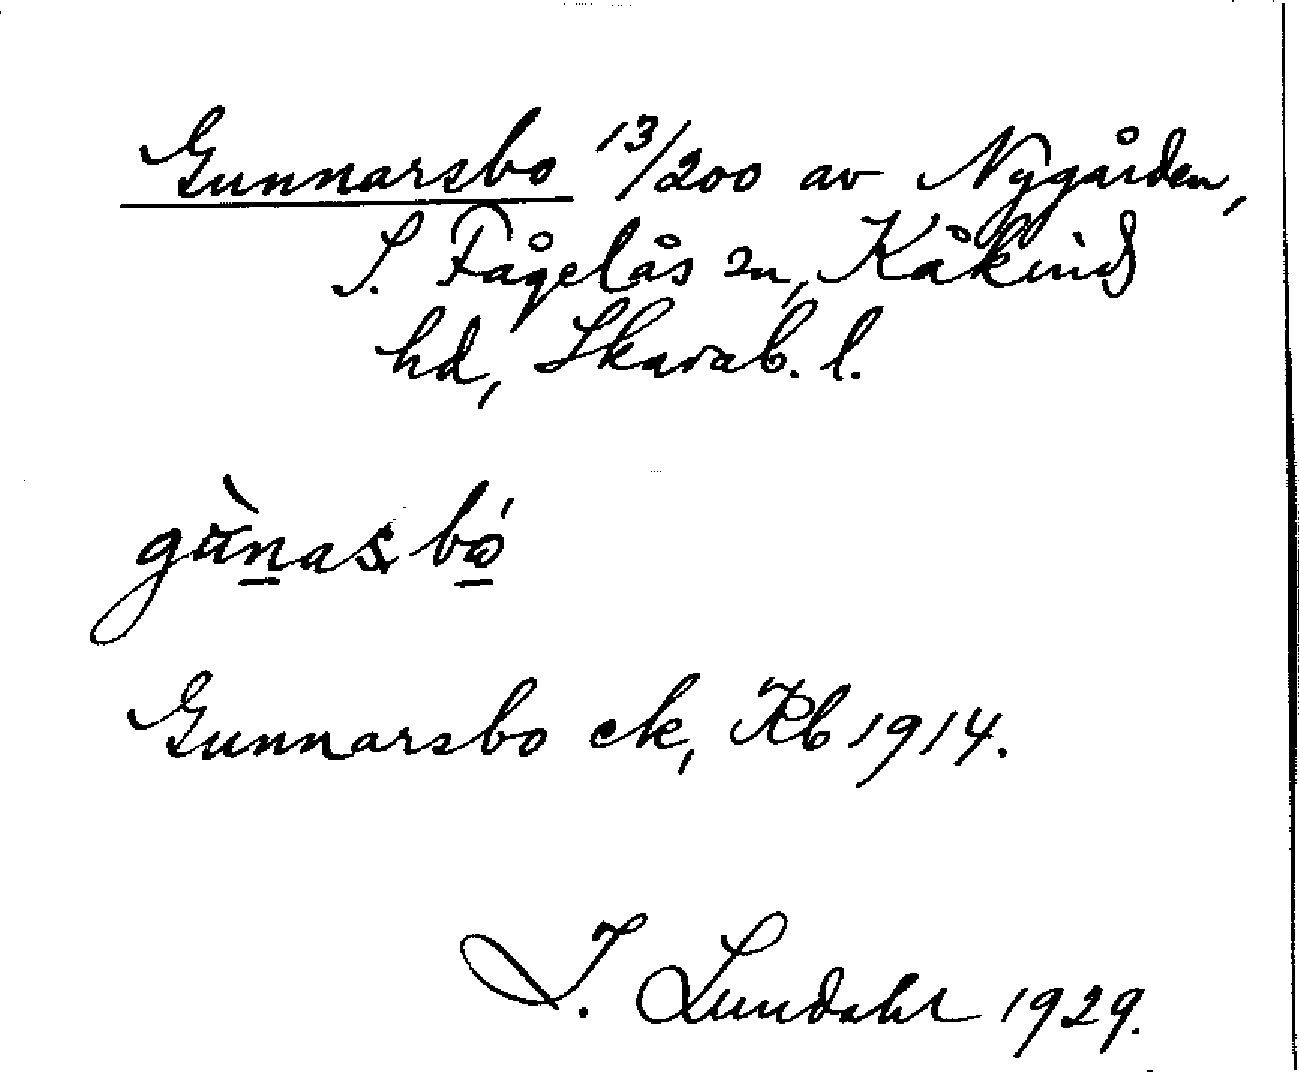 Gunnarsbo 13/200 av Nygården,
S. Fågelås sn, Kåkinds
hd, Skarab. l.
gùnasbó
Gunnarsbo ek, Kb 1914.
I. Lundahl 1929.